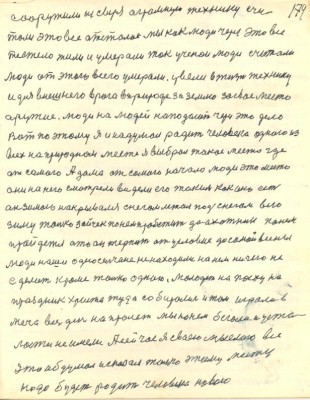 179
сооружили из сырья огромную технику счи
тали это все отсталое мы как люди через это все
тяжело жили и умерали так ученои люди считали
люди от этого всего умерали, ввели эту технику
и для внешнего врага в природе за землю за свое место
оружие. люди на людей нападают через это дело
Вот поэтому я и надумал родить человека одного из
всех на природном месте я выбрал такое место где
от самого Адама от самого начало люди это место
они на него смотрели видели его таким как оно есть
он зимою накрывался снегом лежал под снегом всю
зиму только зайчик по нем пробежит да охотник по нем
пройдется а то он терпит от условие до самой весны
люди наши односельчане не находили на нем ничего не
сделают кроме только одного, молодежь на пасху на
праздник христа туда собирались и там играли в
мяча весь день на пролет мы по нем бегали и уста
лости не имели А сейчас я своею мыслею все
это обдумал и сказал только этому месту
надо будет родить человека нового